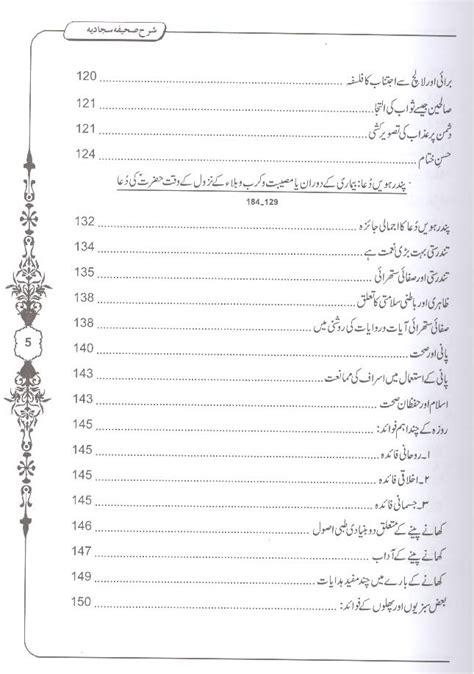 شرح صحیفہ سجادیہ
برائی اور لالچ سے اجتناب کا فلسفہ ........ 120
صالحین جیسے ثواب کی التجا ........ 121
دشمن پر عذاب کی تصویر کشی ........ 121
حسن ختام ........ 124
پندرہویں دُعا: بیماری کے دوران یا مصیبت و کرب و بلاء کے نزول کے وقت حضرت کی دُعا
184۔129
پندرہویں دُعا کا اجمالی جائزہ ........ 132
تندرستی بہت بڑی نعمت ہے ........ 134
تندرستی اور صفائی ستھرائی ........ 135
ظاہری اور باطنی سلامتی کا تعلق ........ 138
صفائی ستھرائی آیات و روایات کی روشنی میں ........ 138
پانی اور صحت ........ 140
پانی کے استعمال میں اسراف کی ممانعت ........ 143
اسلام اور حفظان صحت ........ 143
روزہ کے چند اہم فوائد: ........ 145
۱۔ روحانی فائدہ ........ 145
۲۔ اخلاقی فائدہ ........ 145
۳۔ جسمانی فائدہ ........ 145
کھانے پینے کے متعلق دو بنیادی طبی اصول ........ 146
کھانے پینے کے آداب ........ 147
کھانے کے بارے میں چند مفید ہدایات ........ 149
بعض سبزیوں اور پھلوں کے فوائد: ........ 150
5